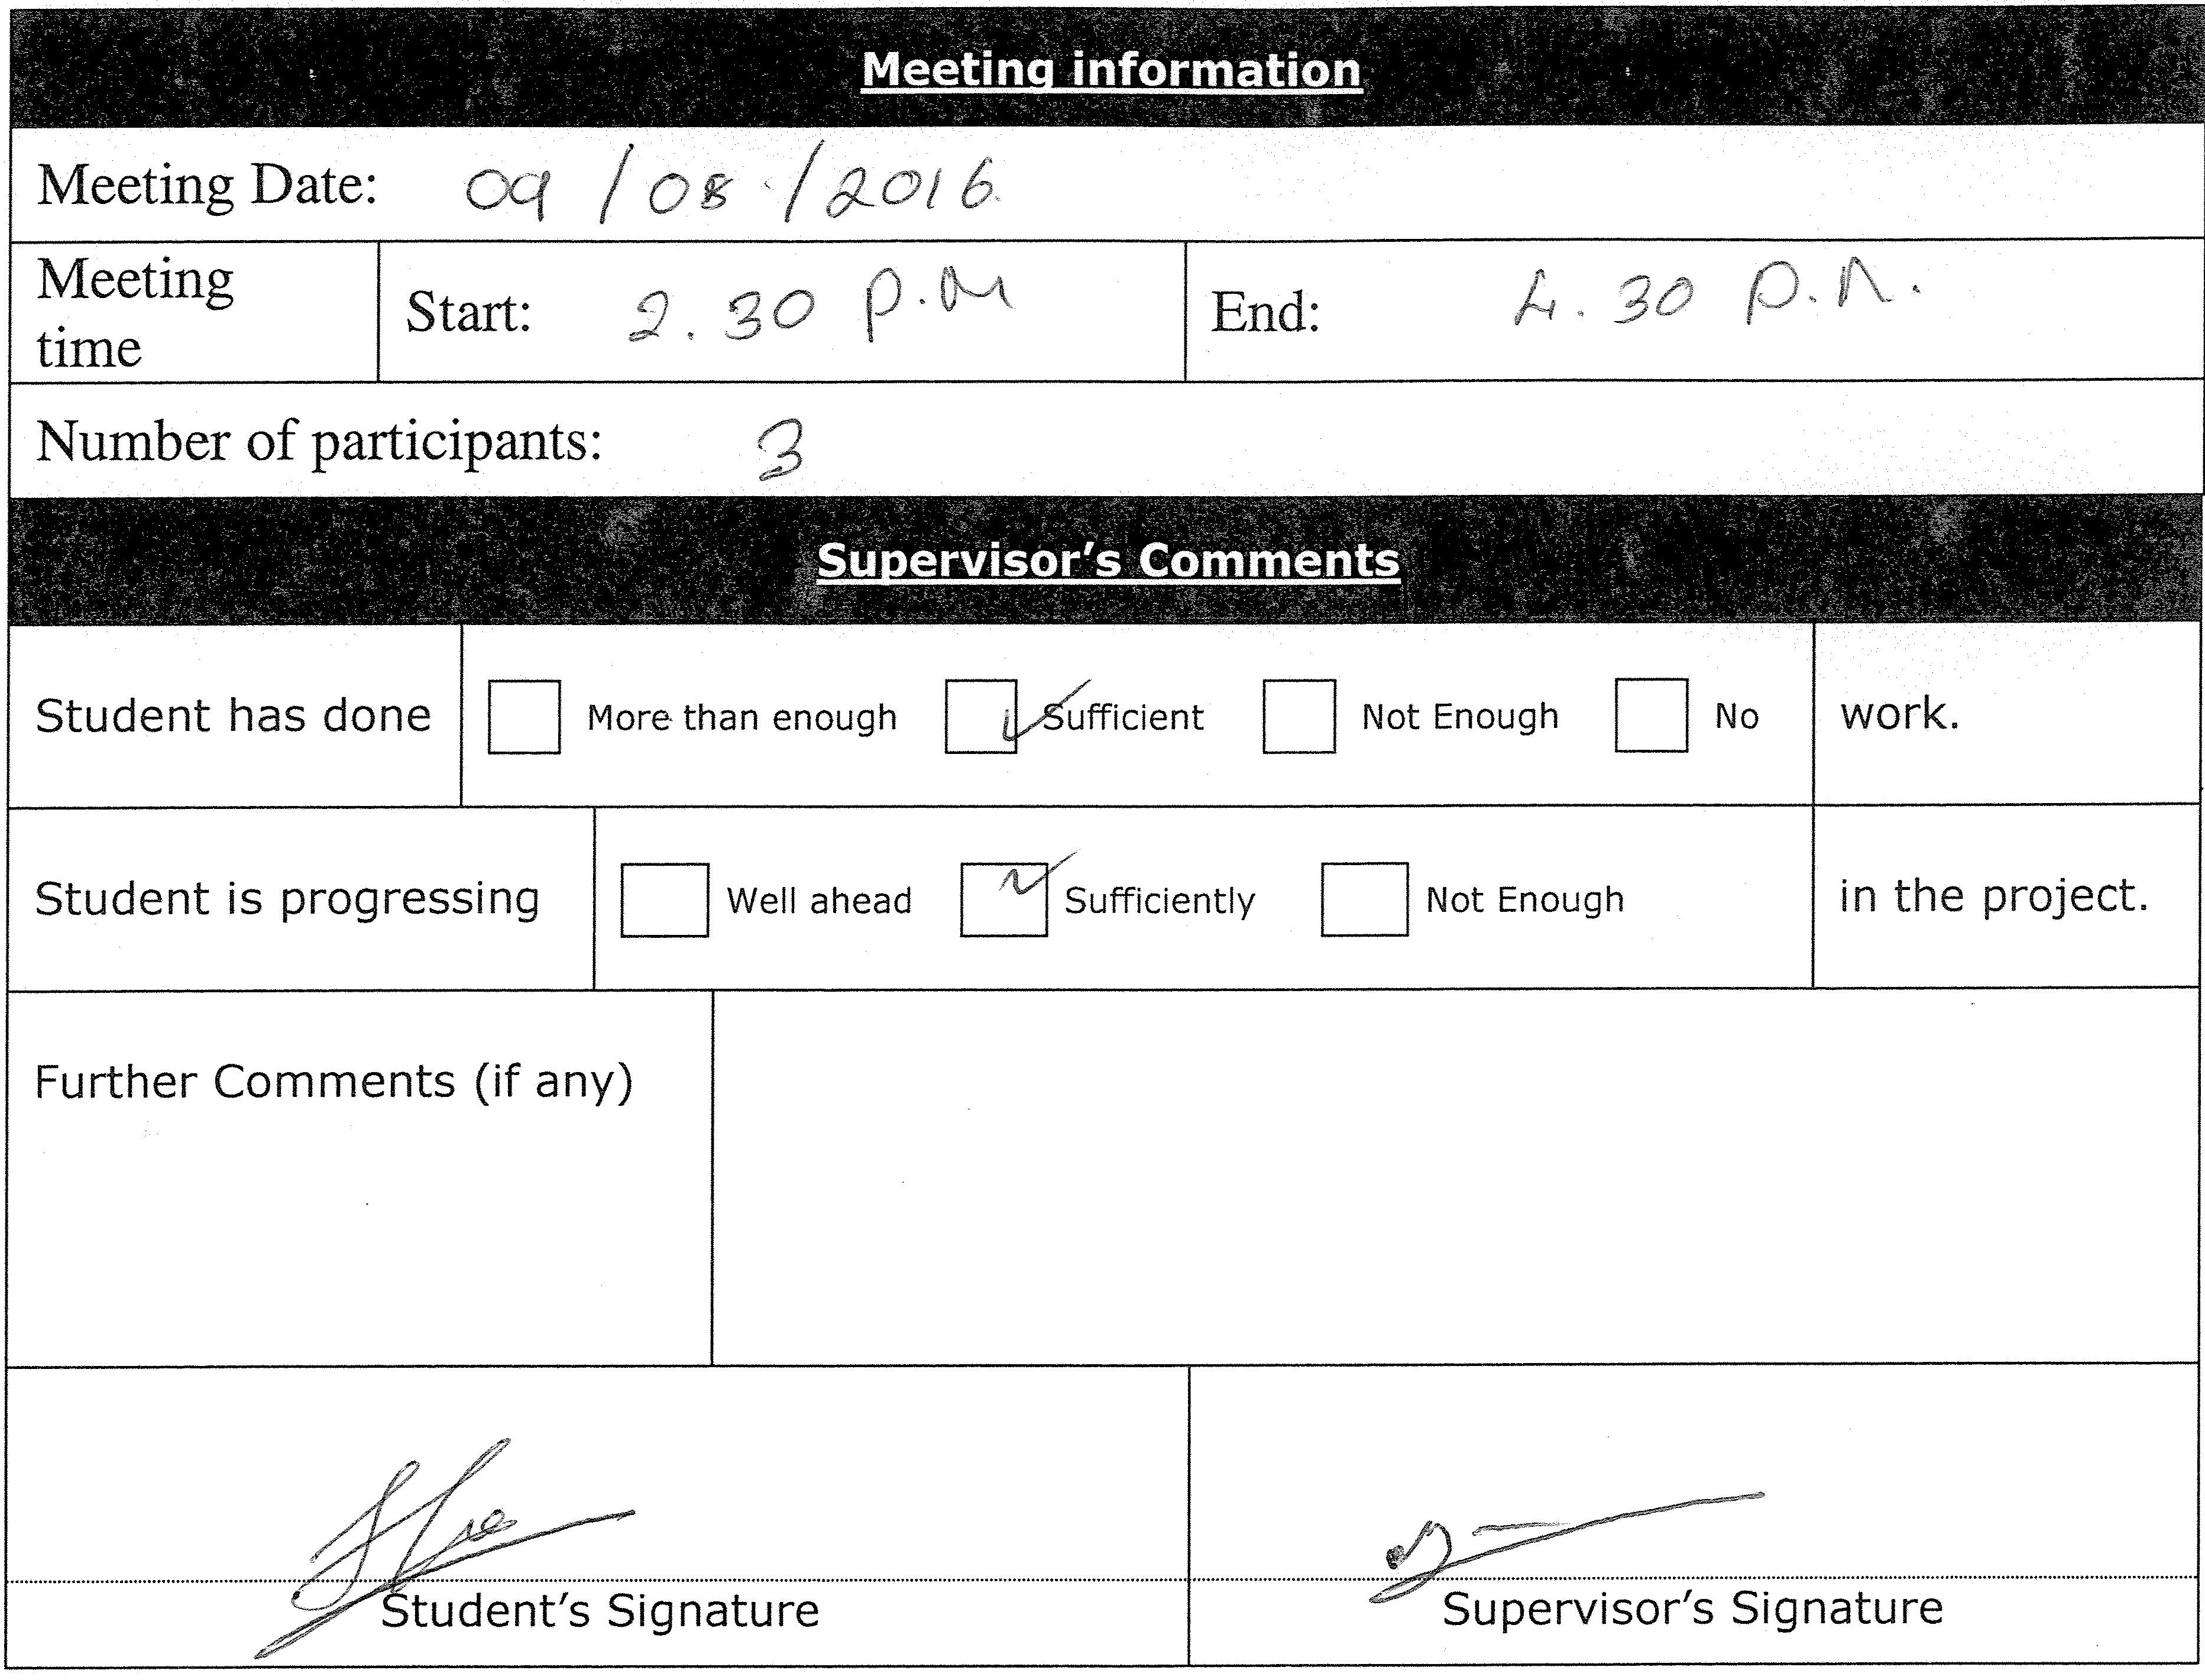 Meeting information
Meeting Date: 09/08/2016.
Meeting time
Start: 2.30 P.M
End: 4.30 P.M.
Number of participants: 3
Supervisor's Comments
Student has done More than enough Sufficient Not Enough No work.
Student is progressing Well ahead Sufficiently Not Enough in the project.
Further Comments (if any)
Student's Signature Supervisor's Signature